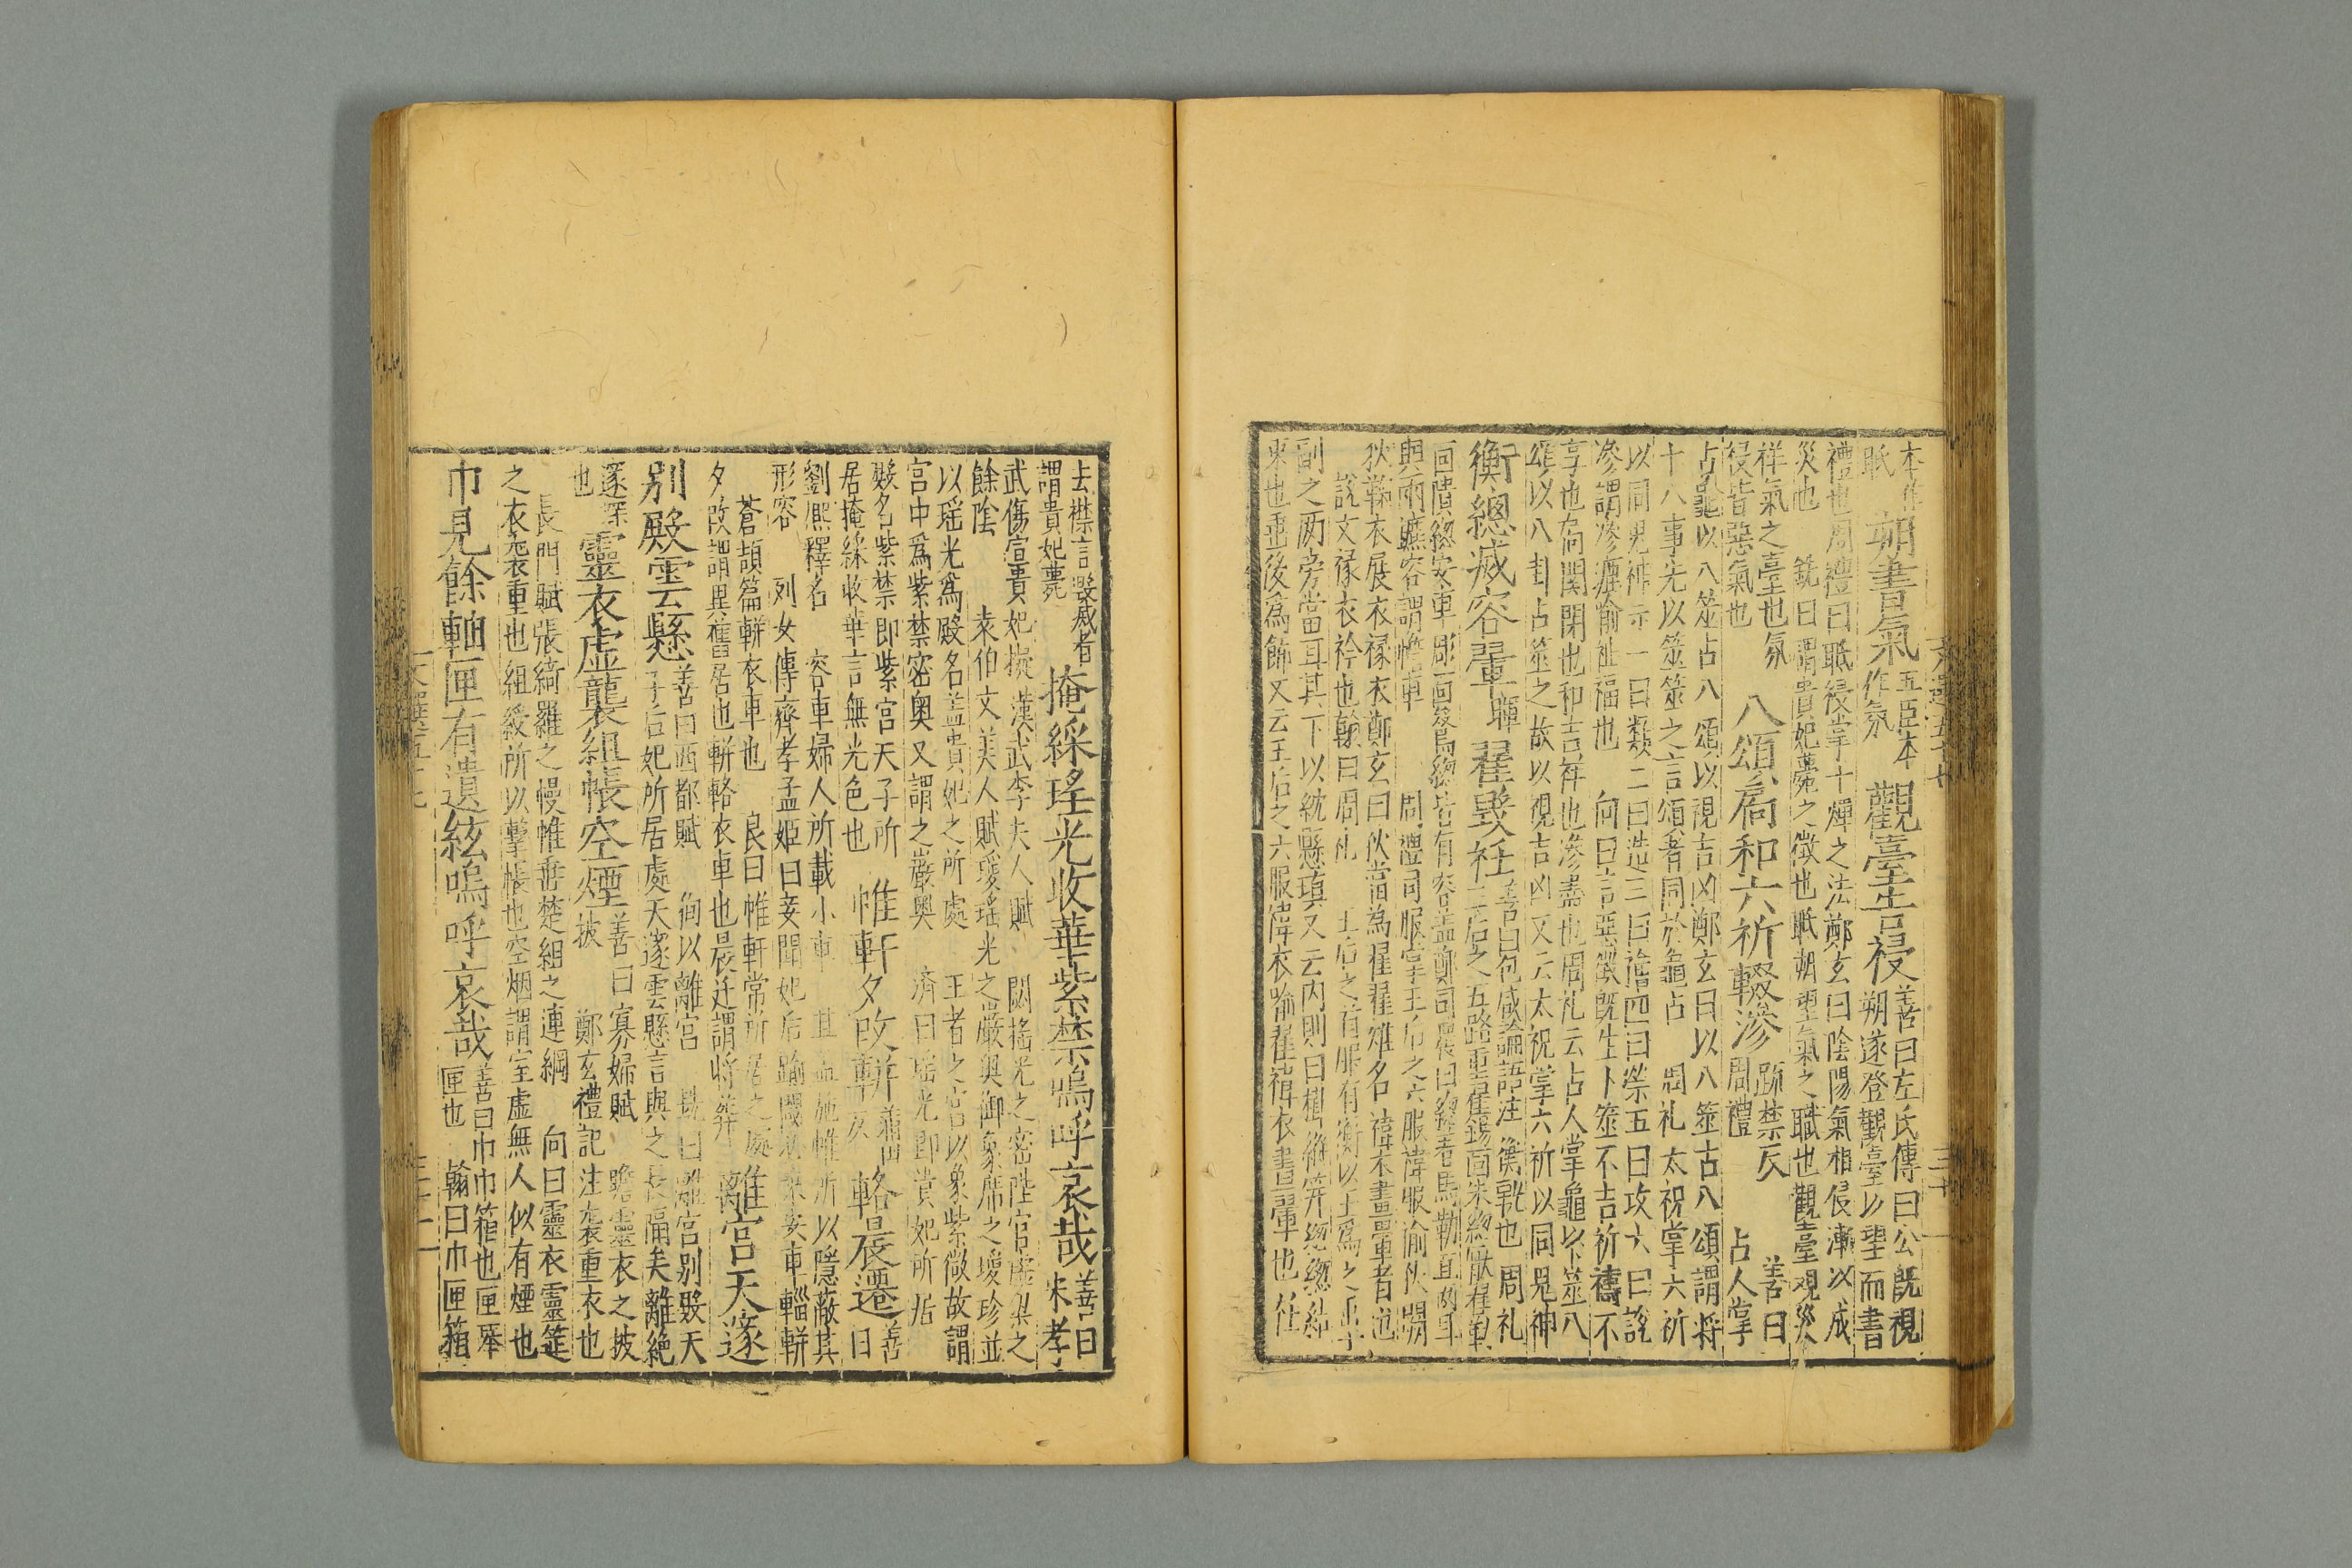 本作
眂 朔書氣 五臣本
作氛 觀臺告祲 善曰左氏傳曰公旣視
朔遂登觀臺以望而書
禮也周禮曰眡祲掌十煇之法鄭玄曰陰陽氣相侵漸以成
災也 銑曰 謂貴妃薨之徵也眂朔望氣之職也觀臺視災
祥氣之臺也氛
祲皆惡氣也 八頌扃和六祈輟滲 䟽禁仄 善曰
周禮 占人掌
占龜以八筮占八頌以視吉凶鄭玄曰以八筮占八頌謂將
十八事先以筮筮之言頌者同於龜占 周礼 太祝掌六祈
以同鬼神示一曰類二曰造三曰禬四曰禜五曰攻六曰說
滲謂滲瀝喻祉福也 向曰言惡徵旣生卜筮不吉祈禱不
享也扃關閉也和吉祥也滲盡也周礼云占人掌龜以筮八
頌以八卦占筮之故以視吉凶又云太祝掌六祈以同鬼神
衡緫滅容翬 暉 翟毀衽 善曰包咸論語注 衡軏也 周礼
王后之五路重翟錫面朱緫厭翟勒
面繢緫安車彫面鷖緫皆有容盖鄭司農曰緫著馬勒直兩耳
與兩鑣容謂幨車 周禮司服掌王后之六服褘服揄狄闕
狄鞠衣展衣褖衣鄭玄曰狄當為翟翟雉名 褘衣畫翬者也
說文褖衣衿也翰曰周礼 王后之首服有衡以玉爲之
副之兩旁當耳其下以紞縣瑱又云内則曰櫛縰笄緫緫
束也垂後爲飾又云王后之六服褘衣喻翟褘衣畫翬也衽
去襟言毀滅者
謂貴妃薨 掩綵瑤光收華紫禁嗚呼哀哉 善曰
宋孝
武傷宣貴妃擬漢武李夫人賦 閟揺光之密陛宫虛梁之
餘陰 枲伯文美人賦瑷瑤光之嚴奥御象席之瑷珍並
以瑤光爲殿名盖貴妃之所處 王者之宫以象紫微故謂
宫中爲紫禁密奥又謂之嚴奥 濟曰瑶光即貴妃所居
殿名紫禁即紫宫天子所
居掩綵收華言無光色也 帷軒夕改軿 輅晨遷 善
曰
劉熈釋名 容車婦人所載小車 其盖施帷所以隱蔽其
形容 列女傳齊孝孟姬曰妾聞妃后踰閾必乘安車輜軿
蒼頡篇軿衣車也 良曰帷軒常所居之處
夕改謂異舊居也軿輅衣車也晨迁謂將葬 離宫天邃
别殿雲懸 善曰西都賦 徇以離宫 銑曰離宫别殿天
子后妃所居處天邃雲懸言與之長隔矣離絶
邃深
也 靈衣虛襲組帳空煙 善曰寡婦賦 瞻靈衣之披
披 鄭玄禮記注襲重衣也
長門賦張綺羅之幔帷垂楚組之連綱 向曰靈衣靈筵
之衣襲重也組綬所以繫帳也空烟謂室虛無人似有煙也
巾見餘軸匣有遺絃嗚呼哀哉 善曰巾巾箱也匣琴
匣也 翰曰巾匣箱